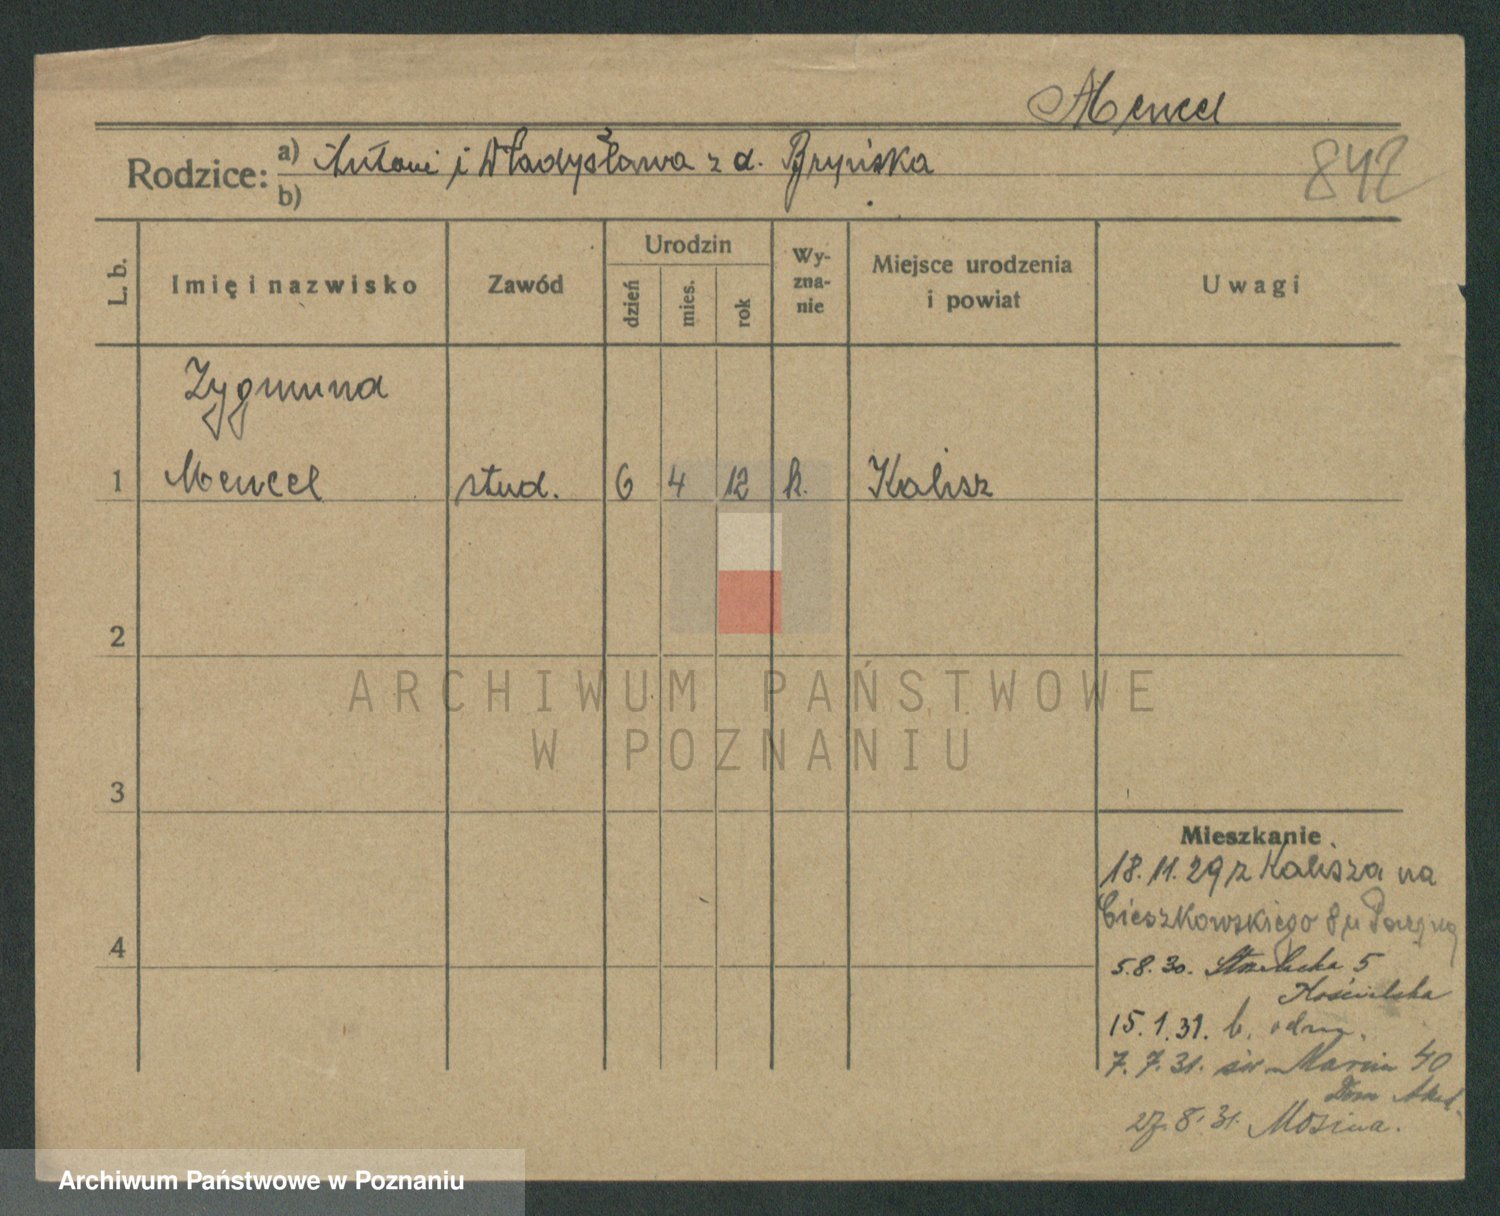 Mencel
Rodzice: a) Antoni i Władysława z d. Bryńska
b)
842
L. b.
Imię i nazwisko
Zawód
Urodzin
dzień
mies.
rok
Wy-
zna-
nie
Miejsce urodzenia
i powiat
Uwagi
Zygmund
1 Mencel stud. 6 4 12 k. Kalisz
2
ARCHIWUM PAŃSTWOWE
W POZNANIU
3
4
Mieszkanie
18.11.29 z Kalisza na
Cieszkowskiego 8 u
5.8.30. Strzelecka 5
Kościelska
15.1.31. b. odm.
7.7.31. św. Marcin 40
Dom Akad.
27.8.31. Mosina.
Archiwum Państwowe w Poznaniu